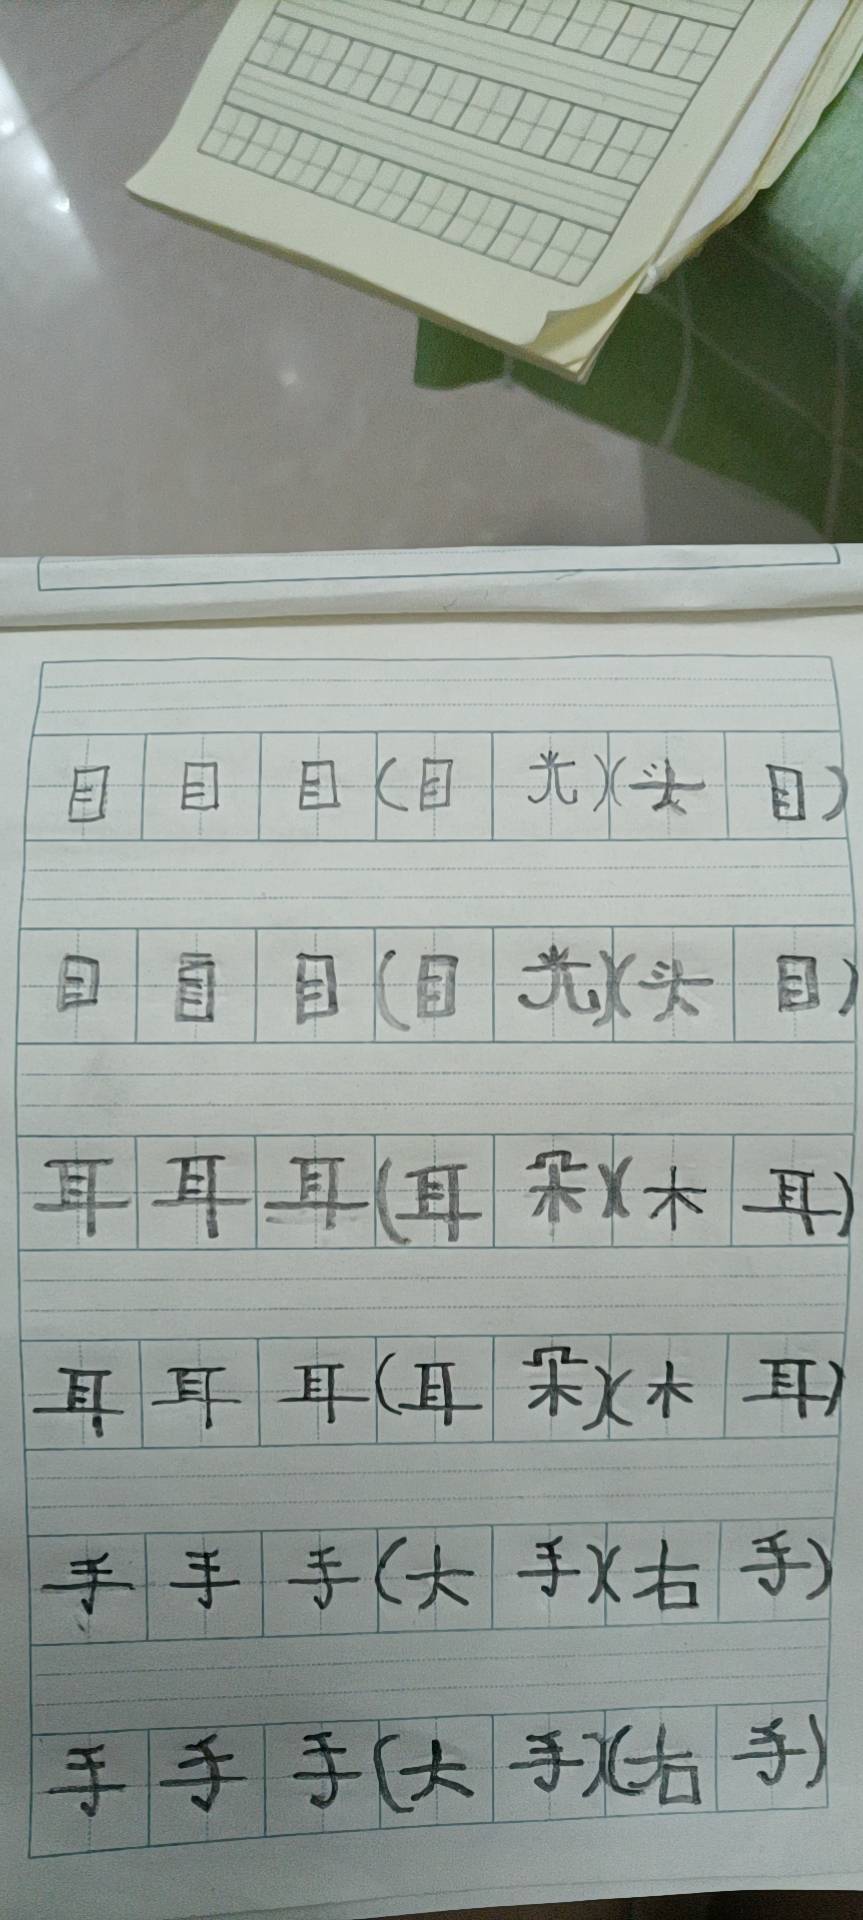 目目目(目光)(头目)
目目目(目光)(头目)
耳耳耳(耳朵)(木耳)
耳耳耳(耳朵)(木耳)
手手手(大手)(右手)
手手手(大手)(右手)